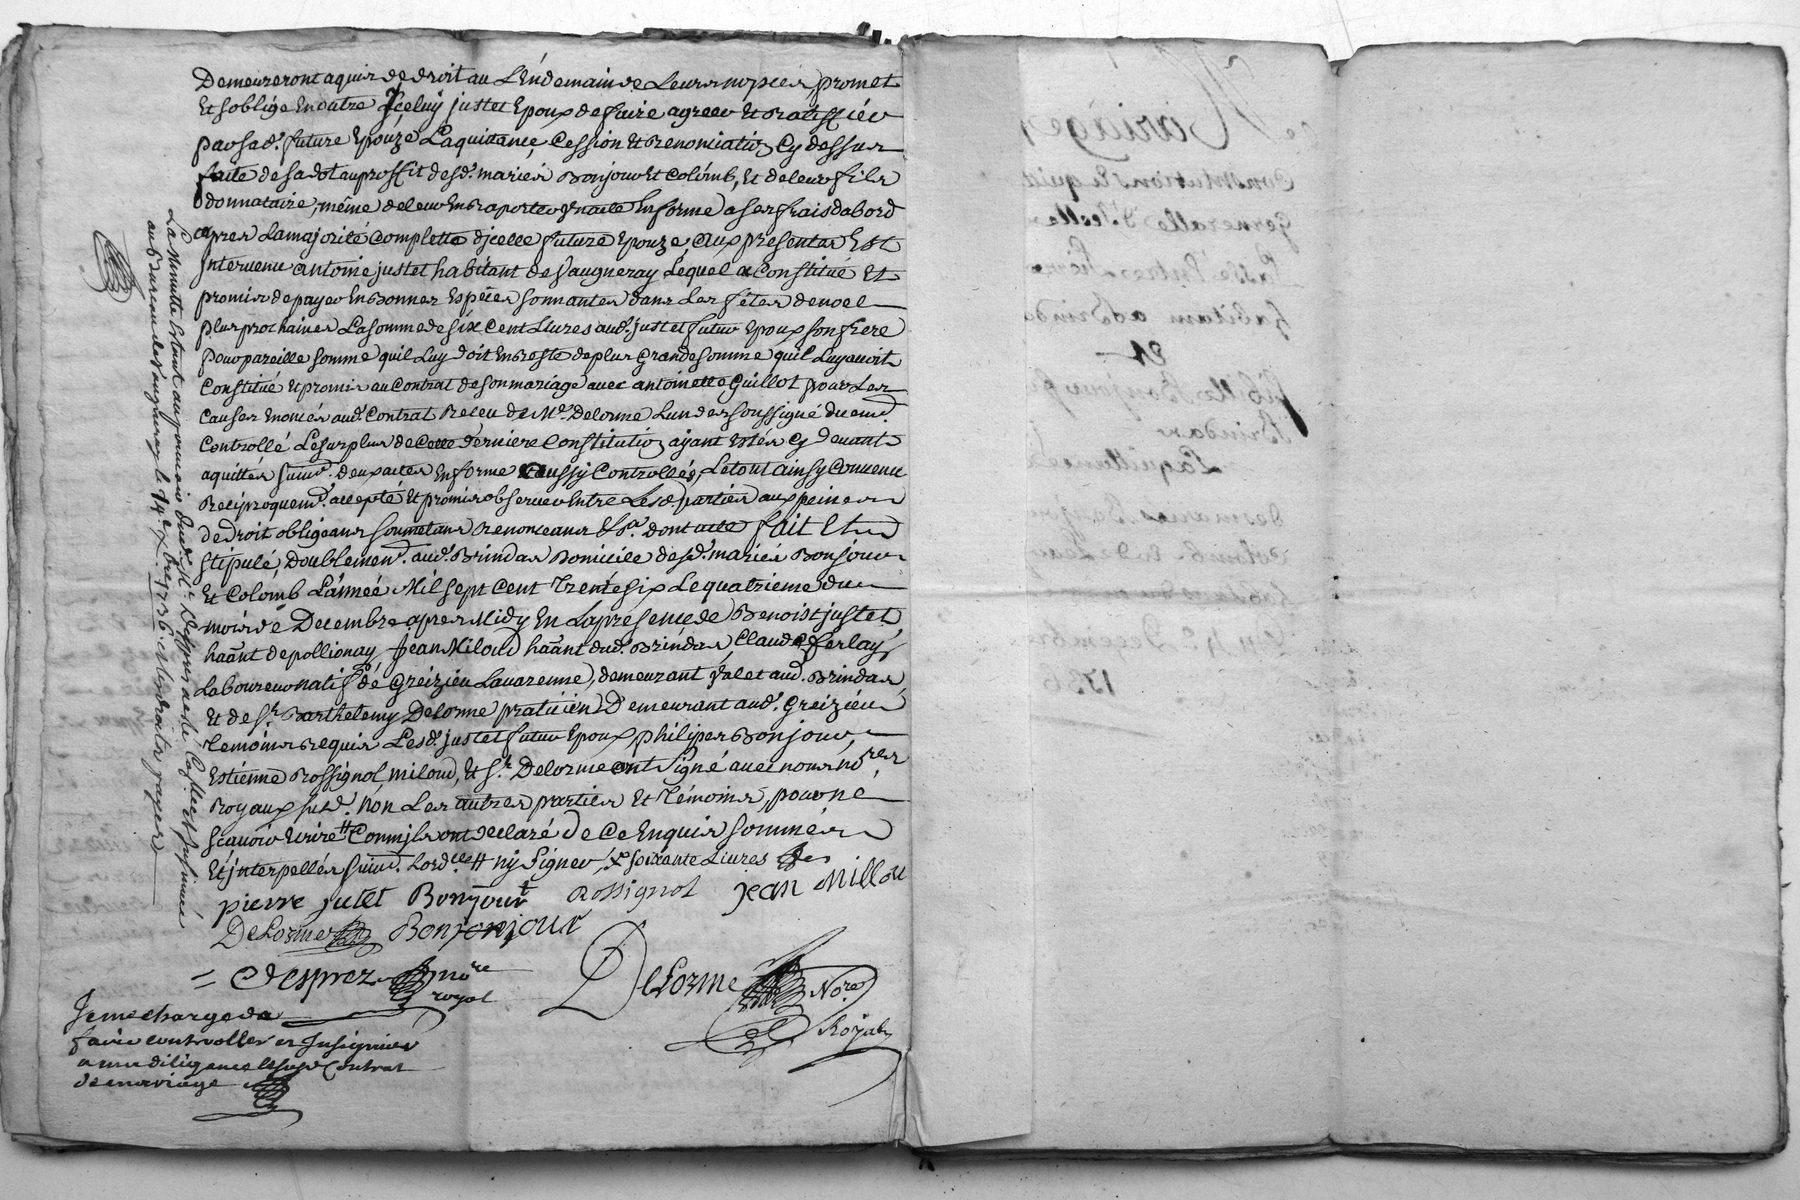 Demeureront aquis de droit au Lendemain de Leurs nopces, promet
Et soblige En outre Jceluy justet Epoux de faire agreer Et Ratiffiér
par sad. future Epouze Laquitance, Cession Et Renonciation Cy dessus
faite de sa dot au proffit desd. mariés Bonjour Et Colomb, Et de leur fils
donnataire, même de leur En Raporter acte En forme a ses frais dabord
apres La majorité Complette d'jcelle future Epouze, aux presentes Est
Intervenu antoine justet habitant de Vaugneray Lequel a Constitué Et
promis de payer En Bonnes Espéces sonnantes dans Les fêtes de noel
plus prochaines La somme de six Cent Livres aud. justet futur Epoux son frere
pour pareille somme quil Luy doit En Reste de plus Grande somme quil Luy avoit
Constitué Et promis au Contrat de son mariage avec antoinette Guillot pour Les
Causes Enoncés aud. Contrat Receu de Me. Delorme Lun des soussigné duem.
Controllé Le surplus de Cette derniere Constitution ayant Estés Cy devant
aquittés suiv. deux actes En forme aussy Controllés, Le tout ainsy Convenu
Reciproquem. accepté Et promis observer Entre Lesd. parties aux peines
de droit obligeans soumetans Renonceans &a. dont acte fait Et
stipulé, Doublement. aud. Brindas Domicile desd. mariés Bonjour
Et Colomb L'année Mil sept Cent Trente six Le quatrieme du
mois de Decembre apres Midy En La présence de Benoist justet
haânt de pollionay, Jean Miloud haânt dud. Brindas, Claude ferlay
Laboureur natif de Greizieu Lavarenne, demeurant valet aud. Brindas
Et de sr. Barthelemy Delorme praticien Demeurant aud. Greiziéu
Temoins Requis Lesd. justet futur Epoux, philipes Bonjour
Estienne Rossignol miloud, Et sr. Delorme ont Signé avec nous nores
Royaux susd. non Les autres parties Et Témoins, pour ne
scavoir Ecrire # Comm'jls ont declaré de Ce Enquis sommés
Et jnterpellés suiv. Lordce # ny signer, x soixante Livres
pierre jutet Bonjour Rossignol jean Millou
DeLorme Bonjonjour
= Desprez nore royal
DeLorme Nore Royal
Je me charge de
faire controller et Insignuer
a mes diligence le susd. Contrat
de mariage
La Minutte Estant au pouvoir dud. Me. Desprez a esté Controllée et Insinuée
au Bureau de Vaugneray le 14e Xbre 1736. Les droits payés
Mariage
Constitutions &quit
Generalle
habitant a Brindas
&
Sibille Bonjour
Brindas
La quittance
des mariés Bonjour
Du 4e Decembre
1736